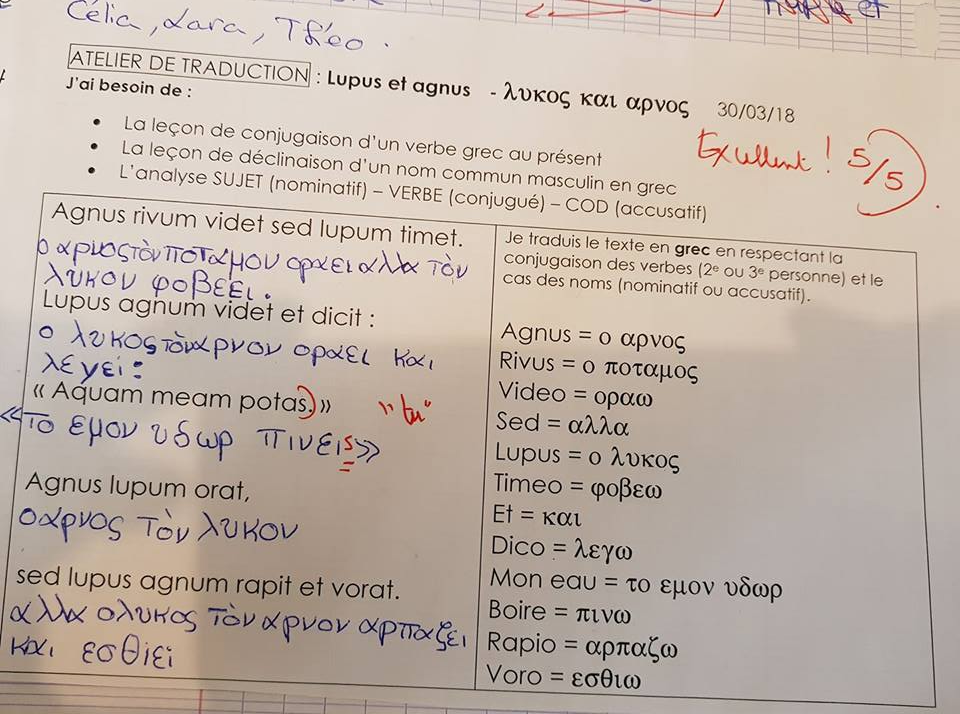 Célia, Lara, Théo.
ATELIER DE TRADUCTION : Lupus et agnus - λυκος και αρνος 30/03/18
J'ai besoin de :
• La leçon de conjugaison d'un verbe grec au présent
• La leçon de déclinaison d'un nom commun masculin en grec
• L'analyse SUJET (nominatif) – VERBE (conjugué) – COD (accusatif)
Excellent ! 5/5
Agnus rivum videt sed lupum timet.
ο αρνος τὸν ποταμον οραει αλλα τὸν
λυκον φοβεει.
Lupus agnum videt et dicit :
ο λυκος τὸν αρνον οραει και
λεγει :
« Aquam meam potas. » "tu"
«το εμον υδωρ πινεις»
Agnus lupum orat,
ο αρνος τὸν λυκον
sed lupus agnum rapit et vorat.
αλλα ο λυκος τὸν αρνον αρπαζει
και εσθιει
Je traduis le texte en grec en respectant la
conjugaison des verbes (2e ou 3e personne) et le
cas des noms (nominatif ou accusatif).
Agnus = ο αρνος
Rivus = ο ποταμος
Video = οραω
Sed = αλλα
Lupus = ο λυκος
Timeo = φοβεω
Et = και
Dico = λεγω
Mon eau = το εμον υδωρ
Boire = πινω
Rapio = αρπαζω
Voro = εσθιω